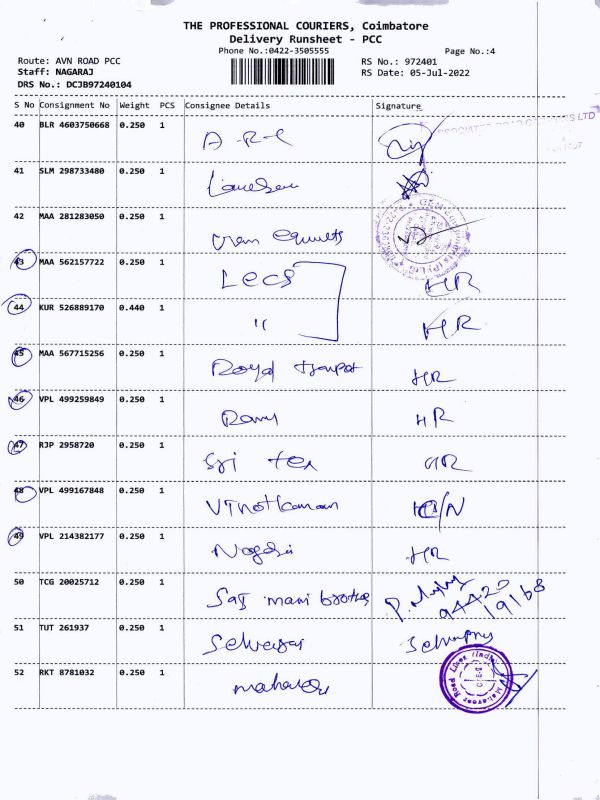 THE PROFESSIONAL COURIERS, Coimbatore
Delivery Runsheet - PCC
Phone No.:0422-3505555
Page No.:4
Route: AVN ROAD PCC
RS No.: 972401
Staff: NAGARAJ
RS Date: 05-Jul-2022
DRS No.: DCJB97240104
S No Consignment No Weight PCS Consignee Details Signature
40 BLR 4603750668 0.250 1 A-R-C
41 SLM 298733480 0.250 1
42 MAA 281283050 0.250 1
43 MAA 562157722 0.250 1 Lecs HR
44 KUR 526889170 0.440 1 " HR
45 MAA 567715256 0.250 1 Royal HR
46 VPL 499259849 0.250 1 HR
47 RJP 2958720 0.250 1 Sri tex HR
48 VPL 499167848 0.250 1 Vinothkannan
49 VPL 214382177 0.250 1 HR
50 TCG 20025712 0.250 1 mani brothers 94420
19168
51 TUT 261937 0.250 1 Selvaraj
52 RKT 8781032 0.250 1